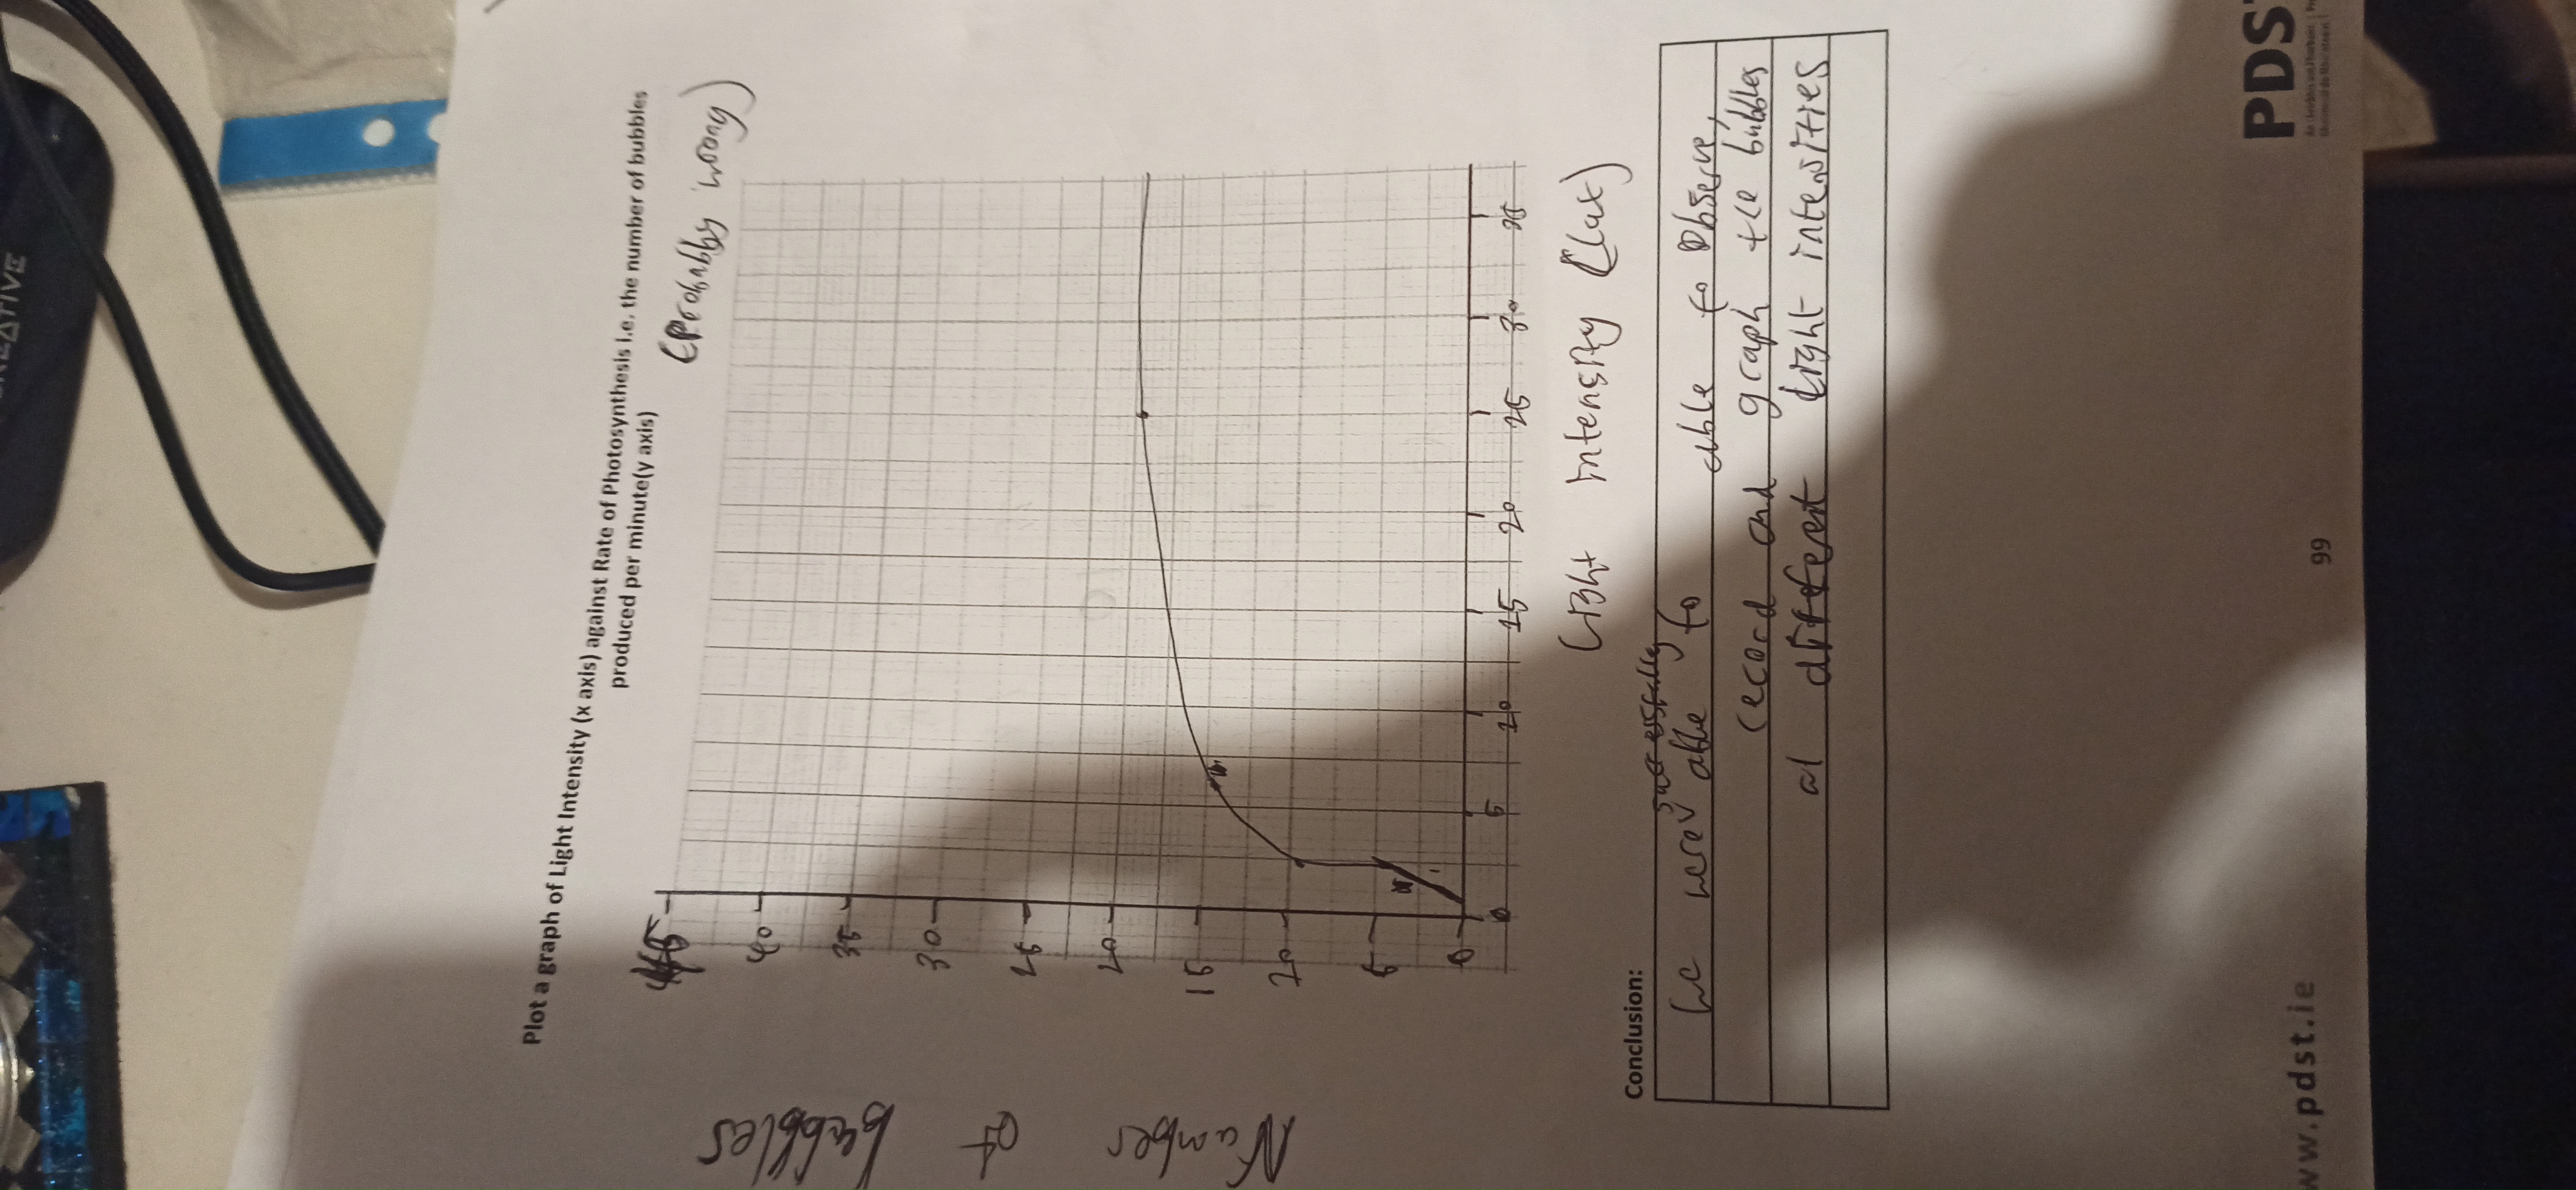 CREATIVE
Plot a graph of Light Intensity (x axis) against Rate of Photosynthesis i.e. the number of bubbles
produced per minute(y axis)
(Probabby wrong)
45
40
35
30
25
20
15
10
5
0
Number of bubbles
0 5 10 15 20 25 30 35
Light intensity (lux)
Conclusion:
successfully
We were able to able to Observe,
record and graph the bubbles
at different light intensities
www.pdst.ie
99
PDST